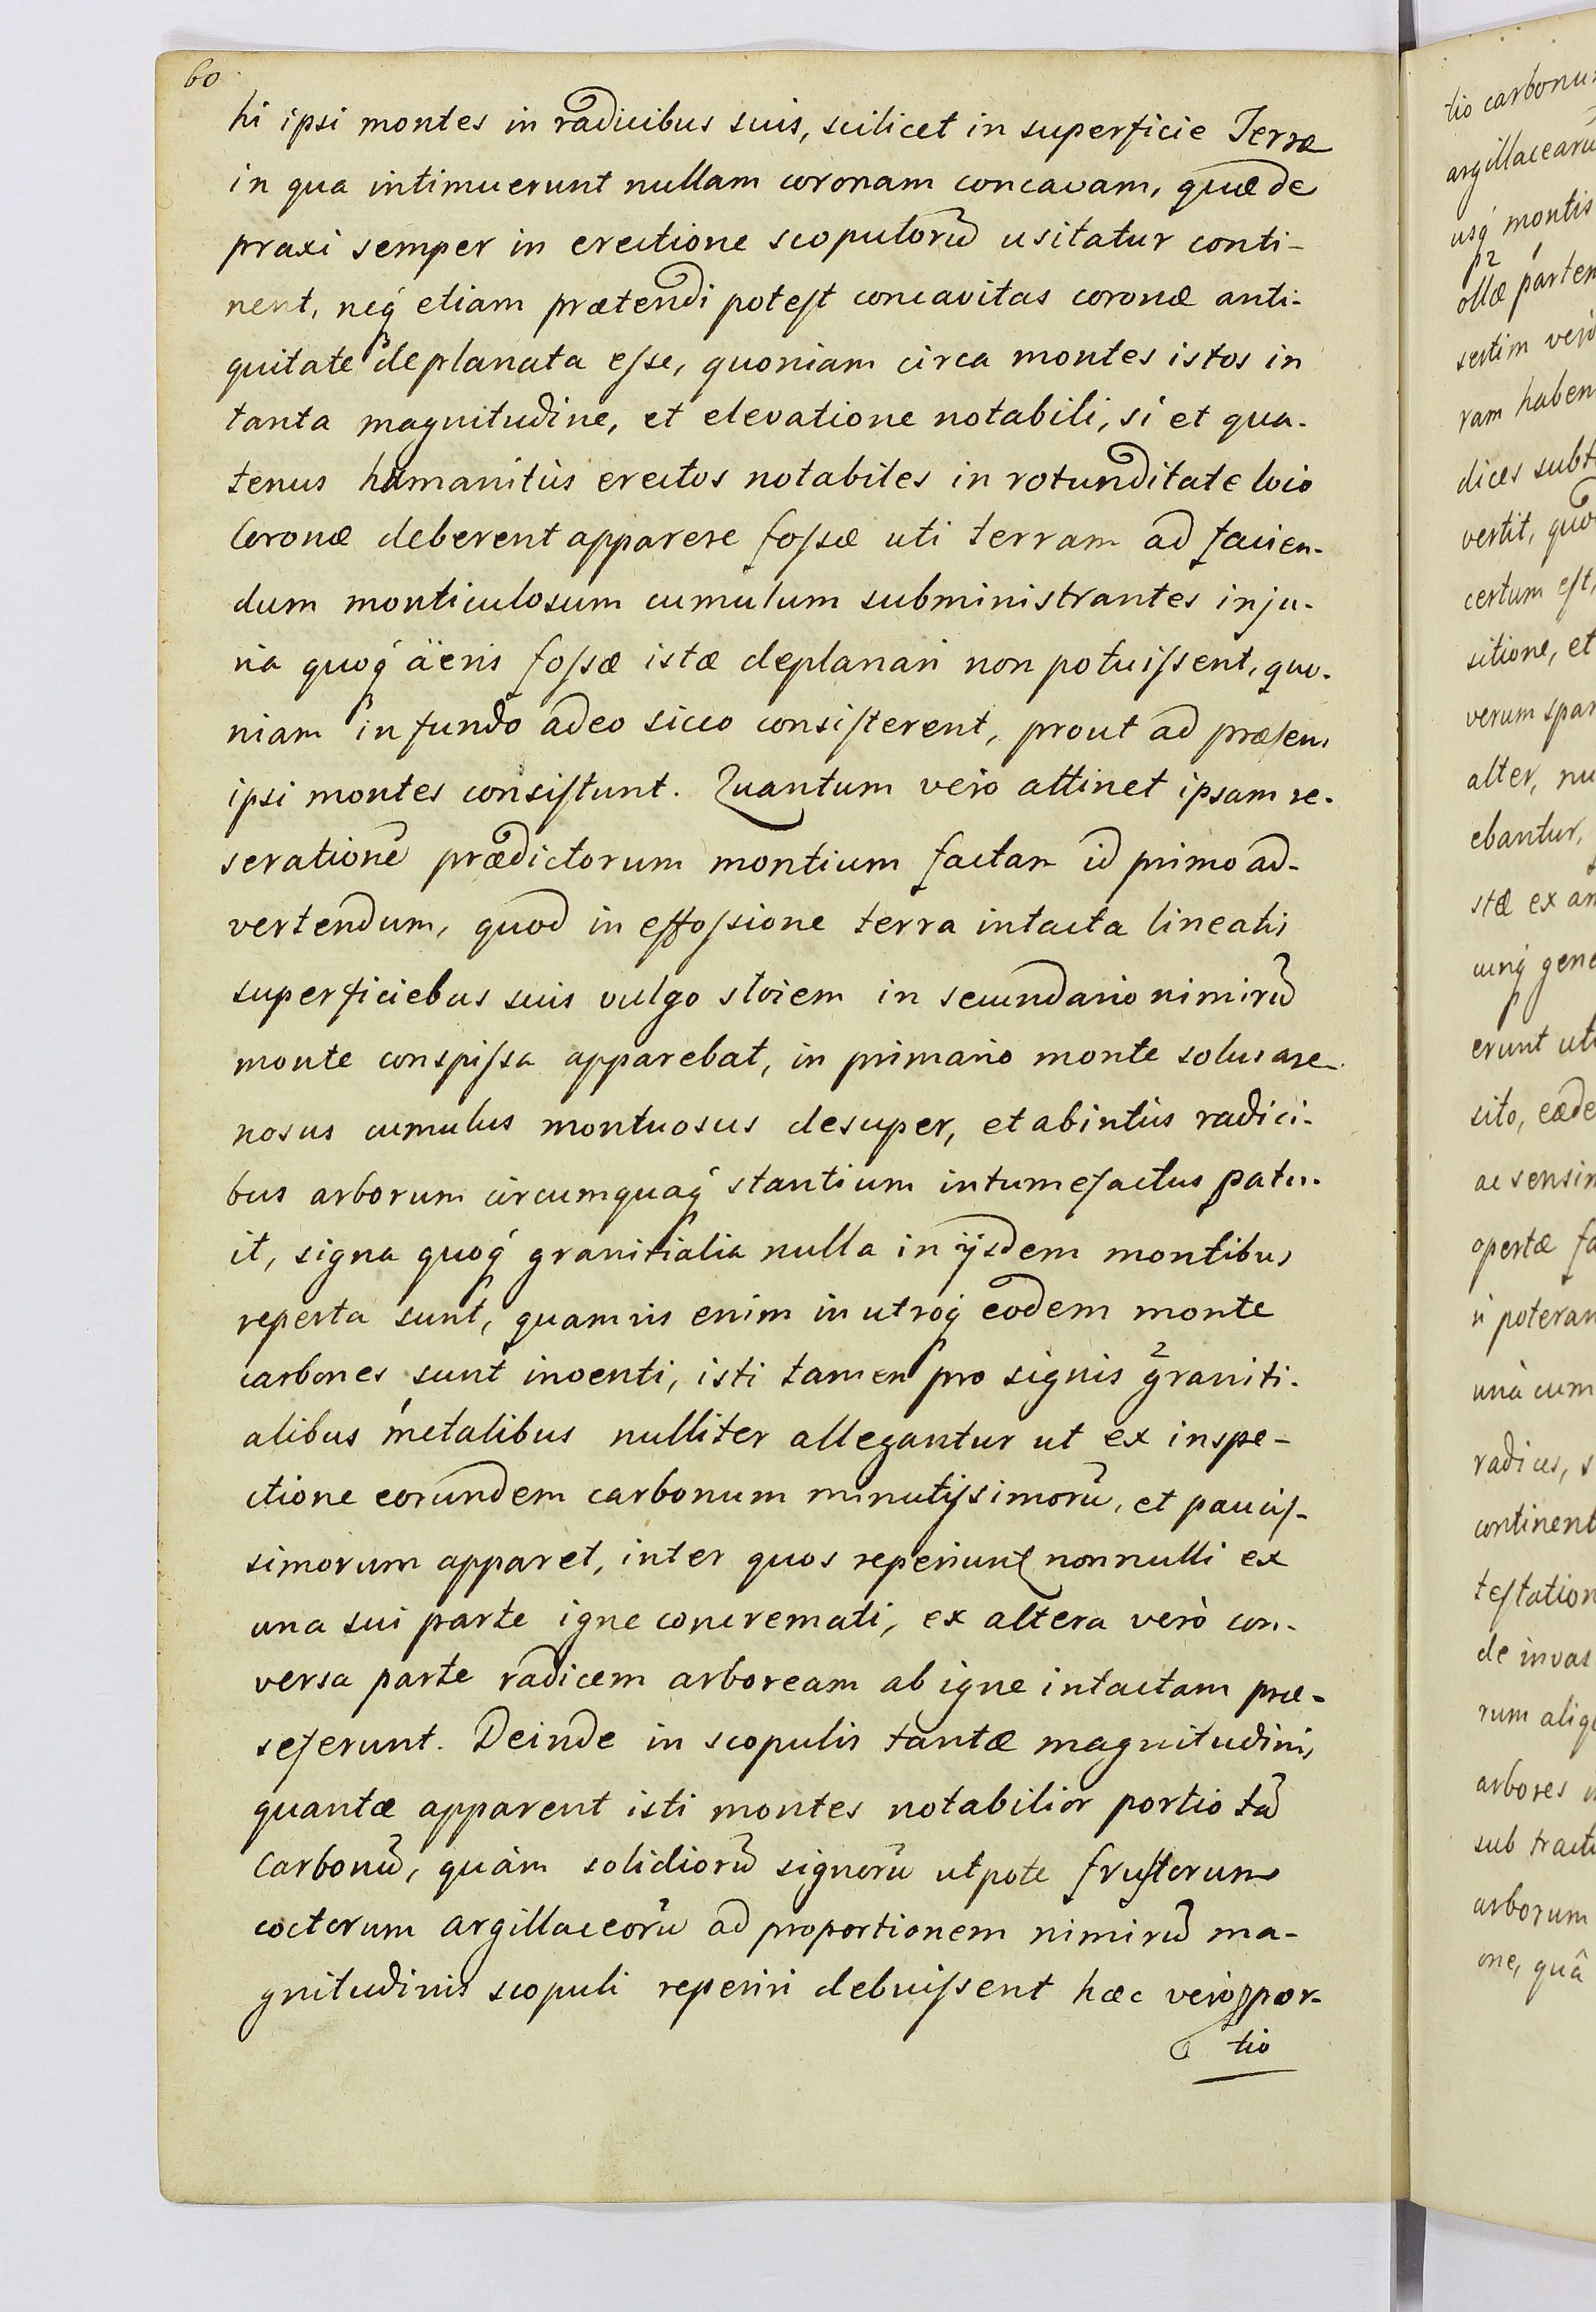 60
hi ipsi montes in radicibus suis, scilicet in superficie Terræ
in qua intimuerunt nullam coronam concavam, quæ de
praxi semper in erectione scopulorũ usitatur conti-
nent, neq́ etiam prætendi potest concavitas coronæ anti-
quitate deplanata esse, quoniam circa montes istos in
tanta magnitudine, et elevatione notabili, si et qua-
tenus humanitùs erectos notabiles in rotunditate loco
Coronæ deberent apparere fossæ uti terram ad facien-
dum monticulosum cumulum subministrantes inju-
ria quoq́ äeris fossæ istæ deplanari non potuissent, quo-
niam in fundo adeo sicco consisterent, prout ad præsens
ipsi montes consistunt. Quantum vero attinet ipsam re-
serationẽ prædictorum montium factam id primo ad-
vertendum, quod in effossione terra intacta lineatis
superficiebus suis vulgo stoiem in secundario nimirũ
monte conspissa apparebat, in primario monte solus are-
nosus cumulus montuosus desuper, et abintùs radici-
bus arborum circumquaq́ stantium intumefactus patu-
it, signa quoq́ granitialia nulla in ijsdem montibus
reperta sunt, quamvis enim in utroq́ eodem monte
carbones sunt inventi, isti tamen pro signis ²graniti-
alibus ¹metalibus nulliter allegantur ut ex inspe-
ctione eorundem carbonum minutissimorũ, et paucis-
simorum apparet, inter quos reperiunt nonnulli ex
una sui parte igne concremati, ex altera verò con-
versa parte radicem arboream ab igne intactam præ-
seferunt. Deinde in scopulis tantæ magnitudinis
quantæ apparent isti montes notabilior portio tã
Carbonũ, quàm solidiorũ signorũ utpote frustorum
coctorum argillaceorũ ad proportionem nimirũ ma-
gnitudinis scopuli reperiri debuissent hæc vero ppor-
tio
tio carbonu
argillacearũ
usq́ montis
ollæ partem
sertim vero
ram haben
dices subt
vertit, quo
certum est,
sitione, et
verum spar
alter, nu
ebantur,
stæ ex an
cunq́ gene
erunt uti
sito, eæde
ac sensim
opertæ fa
ri poteran
unà cum
radices, s
continent
testation
de invas
rum aliq
arbores
sub tractu
arborum
one, quâ